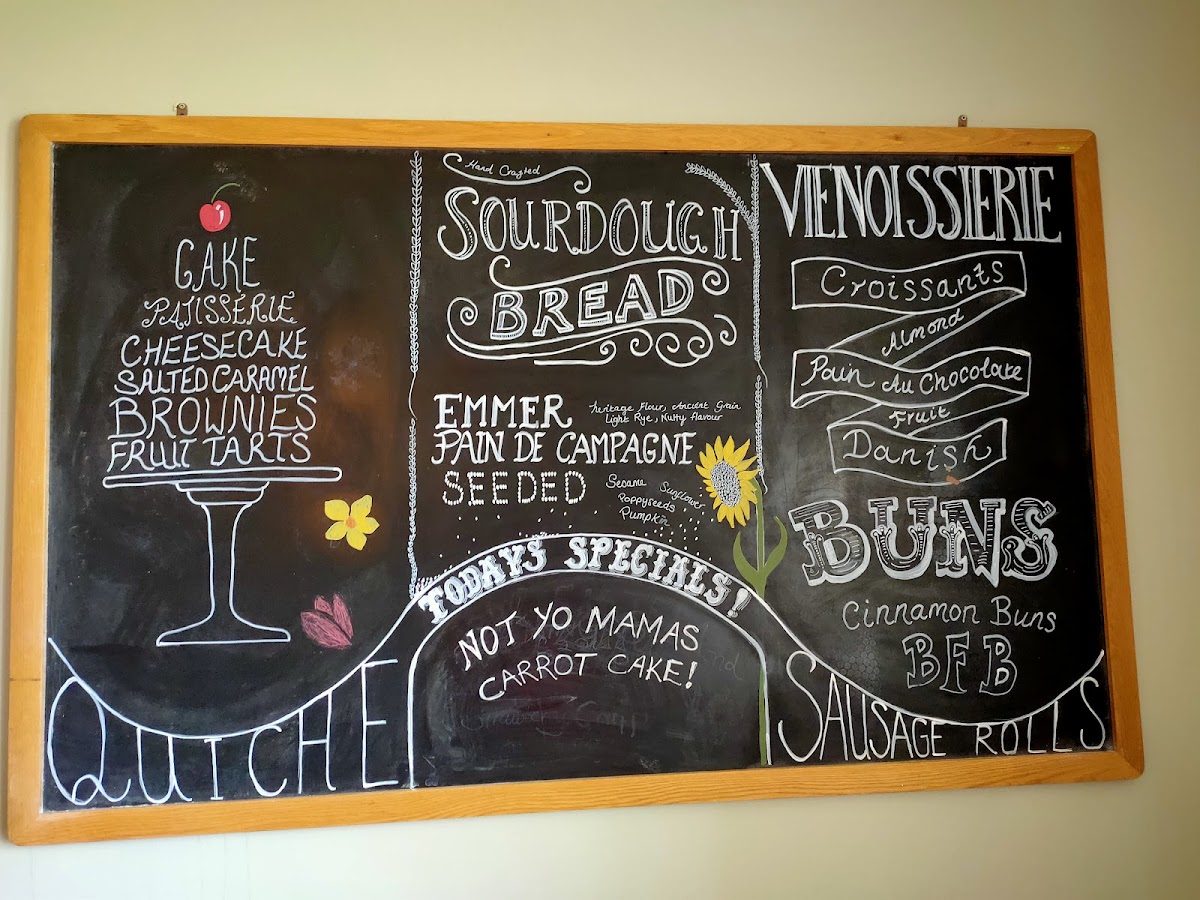 CAKE
PATISSERIE
CHEESECAKE
SALTED CARAMEL
BROWNIES
FRUIT TARTS
QUICHE
Hand Crafted
SOURDOUGH
BREAD
EMMER
Heritage Flour, Ancient Grain
Light Rye, Nutty flavour
PAIN DE CAMPAGNE
SEEDED
Sesame
Sunflower
POPPYSEEDS
Pumpkin
TODAYS SPECIALS!
NOT YO MAMAS
CARROT CAKE!
VIENOISSIERIE
Croissants
Almond
Pain Au Chocolate
Fruit
Danish
BUNS
Cinnamon Buns
BFB
SAUSAGE ROLLS